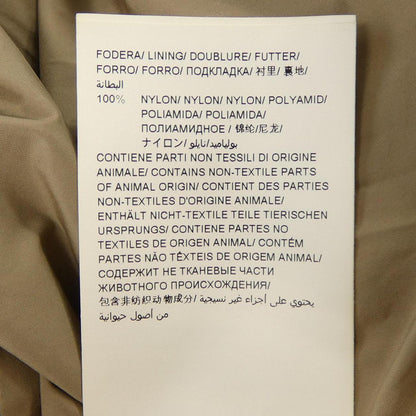 FODERA/ LINING/ DOUBLURE/ FUTTER/
FORRO/ FORRO/ ПОДКЛАДКА/ 衬里/ 裏地/
البطانة
100% NYLON/ NYLON/ NYLON/ POLYAMID/
POLIAMIDA/ POLIAMIDA/
ПОЛИАМИДНОЕ / 锦纶/尼龙/
ナイロン/ بولياميد/نايلو
CONTIENE PARTI NON TESSILI DI ORIGINE
ANIMALE/ CONTAINS NON-TEXTILE PARTS
OF ANIMAL ORIGIN/ CONTIENT DES PARTIES
NON-TEXTILES D'ORIGINE ANIMALE/
ENTHÄLT NICHT-TEXTILE TEILE TIERISCHEN
URSPRUNGS/ CONTIENE PARTES NO
TEXTILES DE ORIGEN ANIMAL/ CONTÉM
PARTES NÃO TÊXTEIS DE ORIGEM ANIMAL/
СОДЕРЖИТ НЕ ТКАНЕВЫЕ ЧАСТИ
ЖИВОТНОГО ПРОИСХОЖДЕНИЯ/
包含非纺织动物成分/ يحتوي على أجزاء غير نسيجية/
من أصول حيوانية